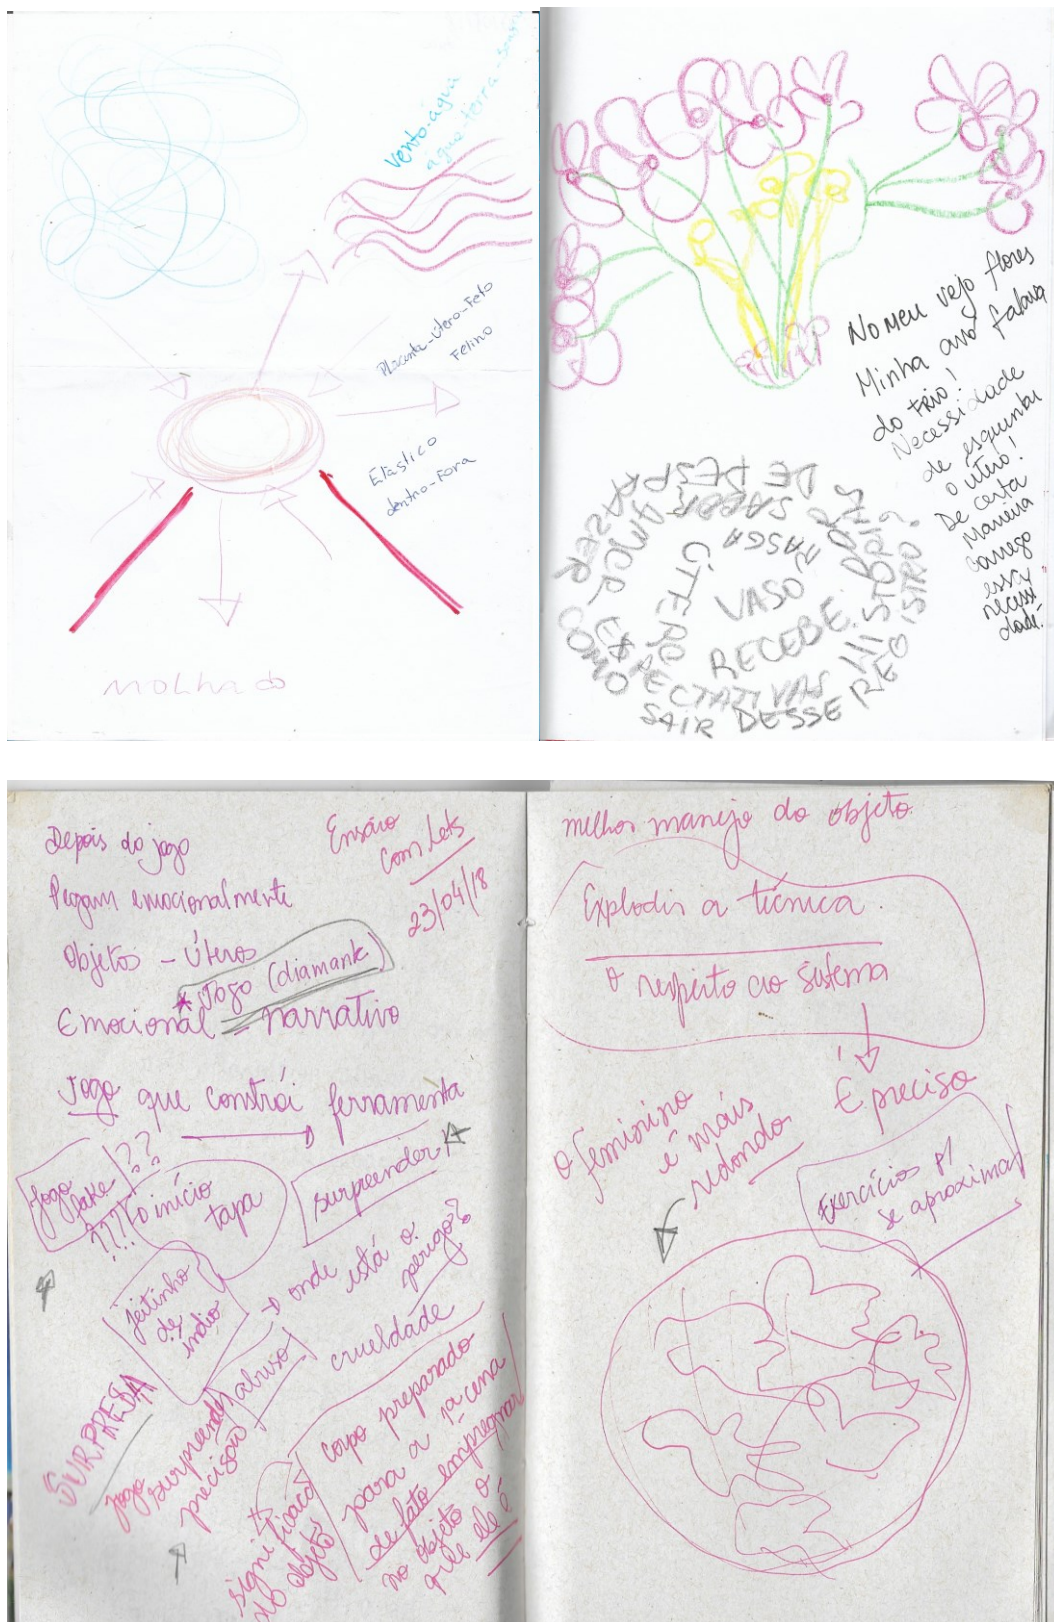 vento-água
água-terra-
Placenta-Útero-Feto
Felino
Elástico
dentro-Fora
MOLhado
No meu vejo flores
Minha avó falava
do FRIO!
Necessidade
de esquentar
o útero!
De certa
maneira
carrego
essa
necessi
dade.
VASO
RECEBE.
ÚTERO
RASGA
EXPECTATIVAS
SAIR DESSE REGISTRO?
COMO
SABOR
DE DESPRA
Depois do jogo
Pegam emocionalmente
Objetos - Úteros
* Jogo (diamante)
Emocional = narrativo
Ensaio
com Lets
23/04/18
Jogo que constrói ferramenta
Jogo
fake
???
o início
tapa
surpreender
jeitinho
de
índio
→ onde está o
perigo?
abuso
crueldade
SURPRESA
Jogo
surpreende
precisão
significação
do objeto
Corpo preparado
para a 1ª cena
de fato empregnar
no objeto o
que ele é
melhor manejo do objeto.
Explodir a técnica.
O respeito ao sistema
É preciso
O feminino
é mais
redondo
Exercícios p/
se aproximar